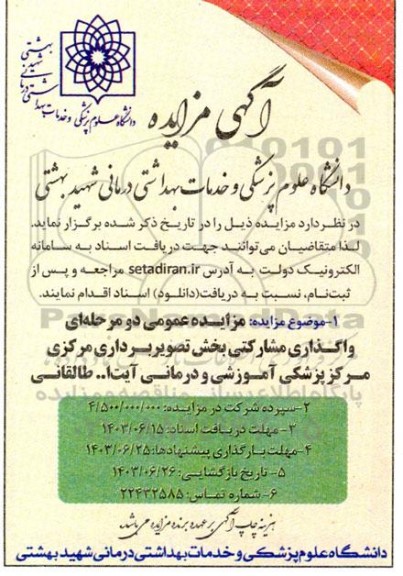 دانشگاه علوم پزشکی و خدمات بهداشتی درمانی شهید بهشتی
آگهی مزایده
دانشگاه علوم پزشکی و خدمات بهداشتی درمانی شهید بهشتی
در نظر دارد مزایده ذیل را در تاریخ ذکر شده برگزار نماید.
لذا متقاضیان می‌توانند جهت دریافت اسناد به سامانه
الکترونیک دولت به آدرس setadiran.ir مراجعه و پس از
ثبت‌نام، نسبت به دریافت(دانلود) اسناد اقدام نمایند.
۱-موضوع مزایده: مزایده عمومی دو مرحله‌ای
واگذاری مشارکتی بخش تصویربرداری مرکزی
مرکز پزشکی آموزشی و درمانی آیت‌ا.. طالقانی
۲-سپرده شرکت در مزایده: ۴/۵۰۰/۰۰۰/۰۰۰
۳-مهلت دریافت اسناد: ۱۴۰۳/۰۶/۱۵
۴-مهلت بارگذاری پیشنهادها: ۱۴۰۳/۰۶/۲۵
۵- تاریخ بازگشایی: ۱۴۰۳/۰۶/۲۶
۶- شماره تماس: ۲۲۴۳۲۵۸۵
هزینه چاپ آگهی بر عهده برنده مزایده می‌باشد.
دانشگاه علوم پزشکی و خدمات بهداشتی درمانی شهید بهشتی